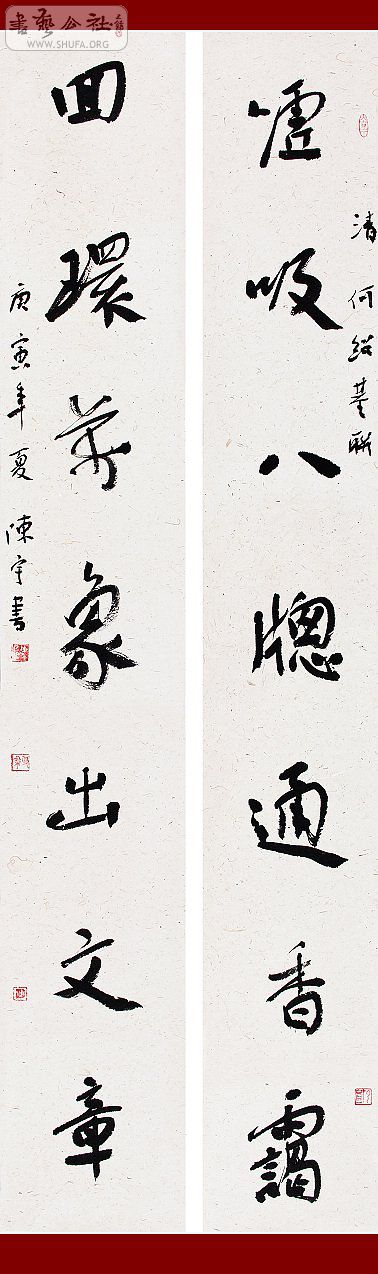 書藝公社
WWW.SHUFA.ORG
清何紹基聯
嘘吸八牕通香靄
回環萬象出文章
庚寅年夏陳宇書